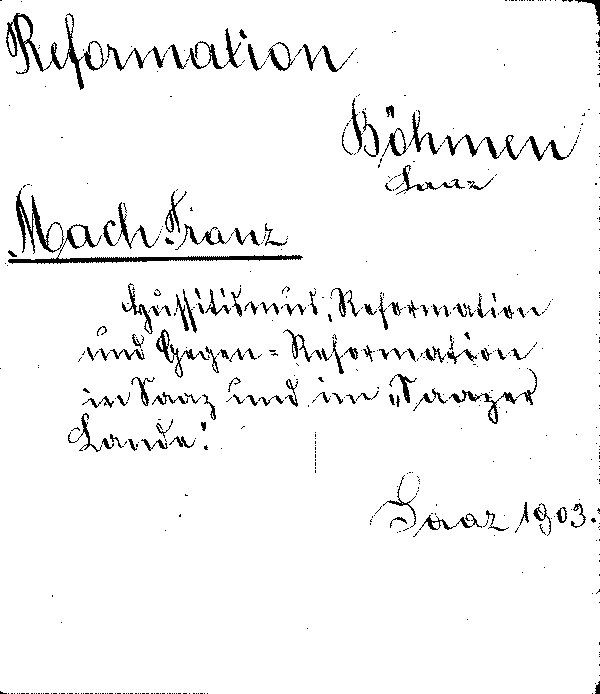 Reformation
Böhmen
Saaz
Mach Franz
Hussitismus, Reformation
und Gegen=Reformation
in Saaz und im „Saazer
Lande".
Saaz 1903.